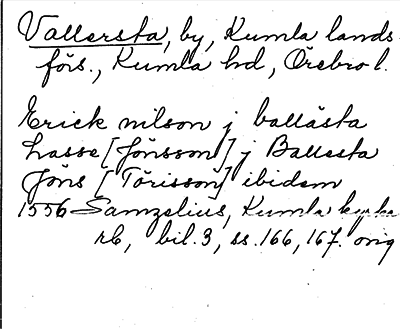 Vallersta, by, Kumla lands-
förs., Kumla hd, Örebro l.
Erick nilson j ballästa
Lasse [Jönsson] j Ballesta
Jöns [Törisson] ibidem
1556 Samzelius, Kumla kyrka
rb, bil. 3, ss. 166, 167. orig